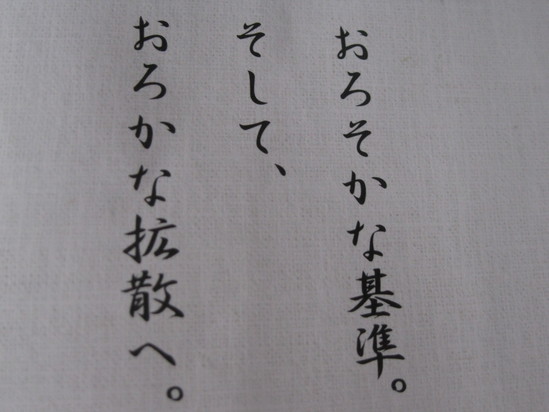 おろそかな基準。
そして、
おろかな拡散へ。